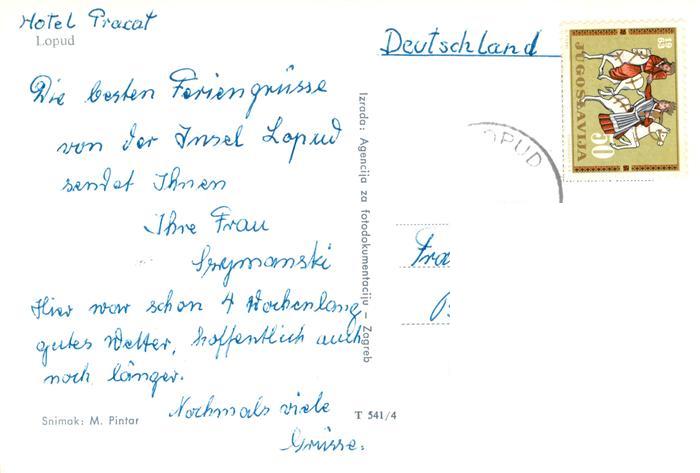 Hotel Pracat
Lopud
Die besten Feriengrüsse
von der Insel Lopud
sendet Ihnen
Ihre Frau
Szymanski
Hier war schon 4 Wochenlang
gutes Wetter, hoffentlich auch
noch länger.
Nochmals viele
Grüsse.
Snimak: M. Pintar
Izrada: Agencija za fotodokumentaciju – Zagreb
T 541/4
Deutschland
1963
JUGOSLAVIJA
50
LOPUD